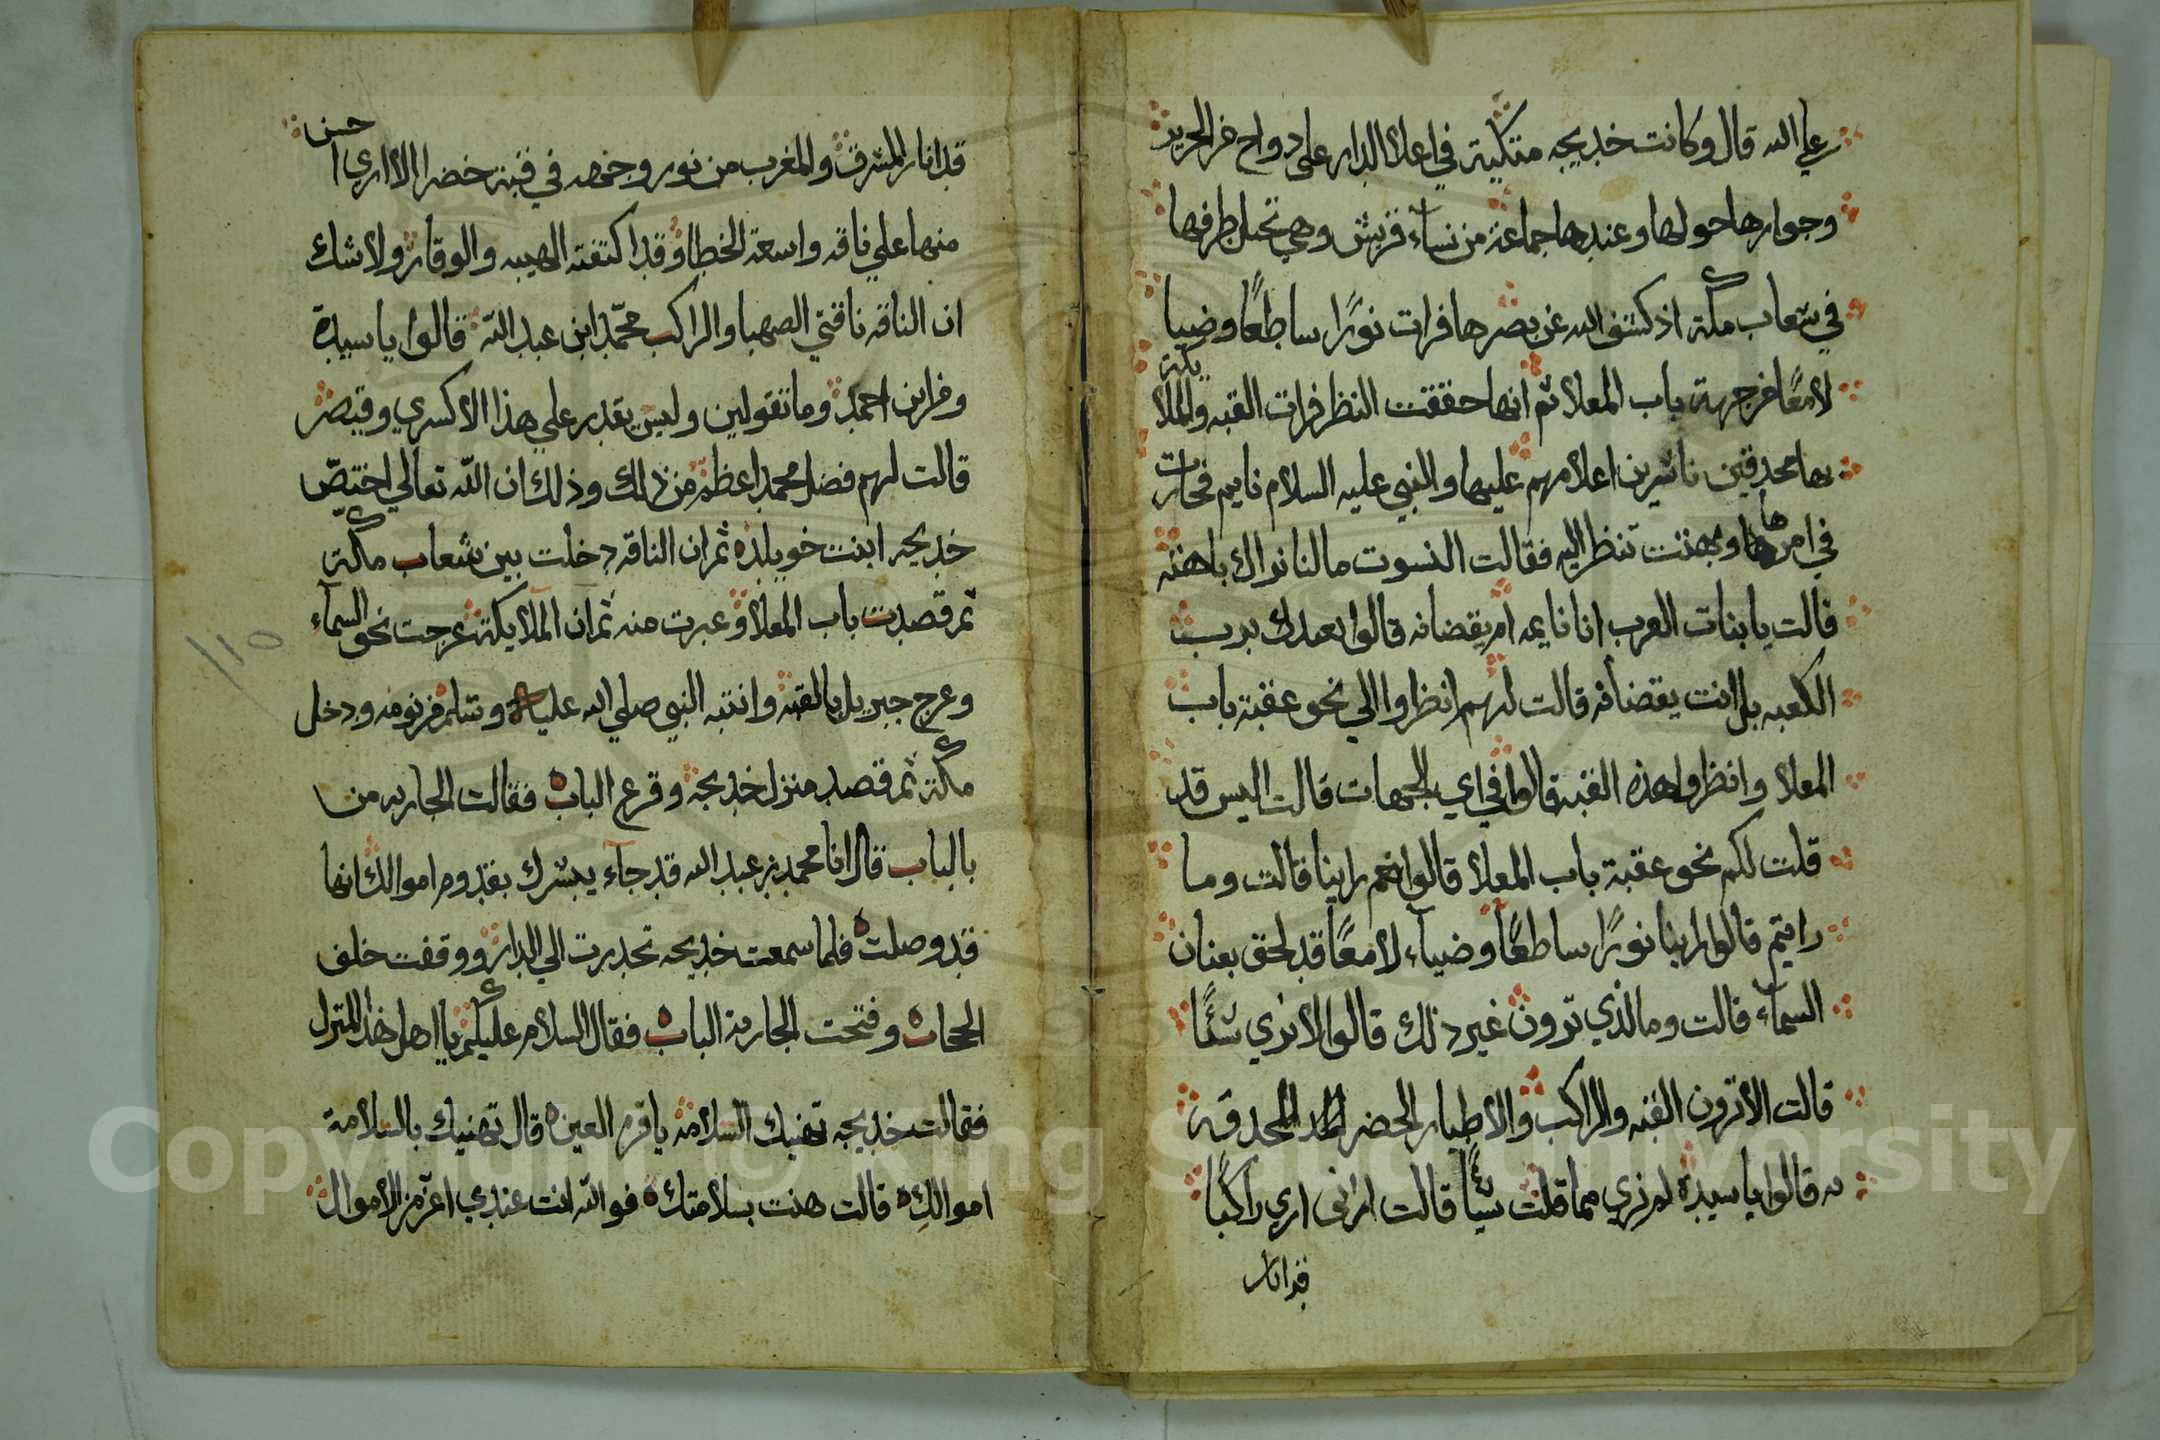 علي الله قال وكانت خديجه متكية في اعلا الدار على دواح من الحرير
وجوارها حولها وعندها جماعة من نساء قريش وهي تحيل طرفها
في شعاب مكة اذ كشف الله عن بصرها فرات نورًا ساطعًا وضيا
لامعًا من جهة باب المعلا ثم انها حققت النظر فرات القبه والملايكة
بها محدقين ناشرين اعلامهم عليها والنبي عليه السلام نايم فحارت
في امرها وبهتت تنظر اليه فقالت النسوت مالنا نراك باهته
قالت يا بنات العرب انا نايمه ام يقضانه قالوا نعيدك برب
الكعبه بل انت يقضانه قالت لهم انظروا الي نحو عقبة باب
المعلا وانظروا هذه القبه قالوا في اي الجهات قالت اليس قد
قلت لكم نحو عقبة باب المعلا قالوا نعم راينا قالت وما
رايتم قالوا راينا نورًا ساطعًا وضياء لامعًا قد لحق بعنان
السماء قالت وما الذي ترون غير ذلك قالوا لا نري شيًا
قالت الا ترون القبه والراكب والاطيار الخضر المحدقه
به قالوا يا سيدة لم نري مما قلت شيًا قالت اني اري راكبًا
قد انار
قد انار المشرق والمغرب من نور وجهه في قبة خضرا لا اري احسن
منها علي ناقه واسعة الخطا وقد اكتنفته الهيبه والوقار ولا شك
ان الناقه ناقتي الصهبا والراكب محمّد ابن عبد الله قالوا يا سيدة
ومن اين لمحمد وما تقولين وليس يقدر علي هذا الا كسري وقيصر
قالت لهم فضل محمد اعظم من ذلك وذلك ان الله تعالي اختصّ
خديجه ابنت خويلد ثم ان الناقه دخلت بين شعاب مكة
ثم قصدت باب المعلا وعبرت منه ثم ان الملايكة عرجت نحو السماء
وعرج جبريل بالقبه وانتبه النبي صلي الله عليه وسلم من نومه ودخل
مكة ثم قصد منزل خديجه وقرع الباب فقالت الجاريه من
بالباب قال انا محمد بن عبد الله قد جاء يبشرك بقدوم اموالك انها
قد وصلت فلما سمعت خديجه تحدرت الي الدار ووقفت خلف
الحجاب وفتحت الجارية الباب فقال السلام عليكم يا اهل هذا المنزل
فقالت خديجه تهنيك السلامه يا قرة العين قال تهنيك بالسلامة
اموالك قالت هنت بسلامتك فوالله انت عندي اعز من الاموال
١١٥
Copyright © King Saud University